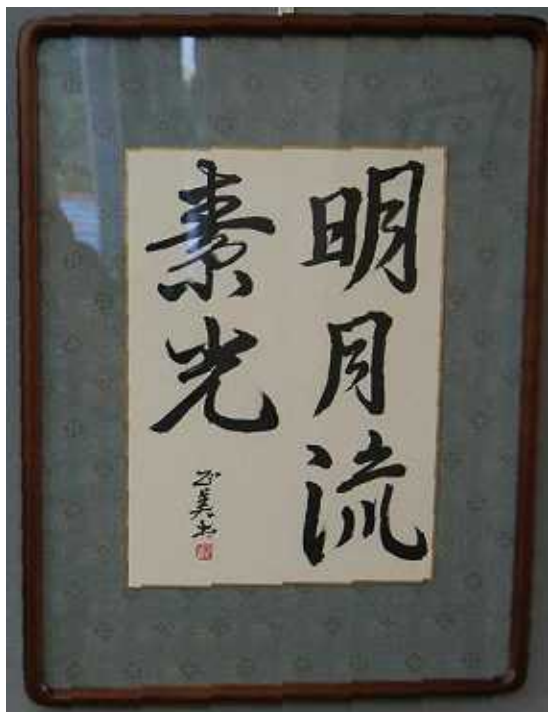 明月流
素光
正美書